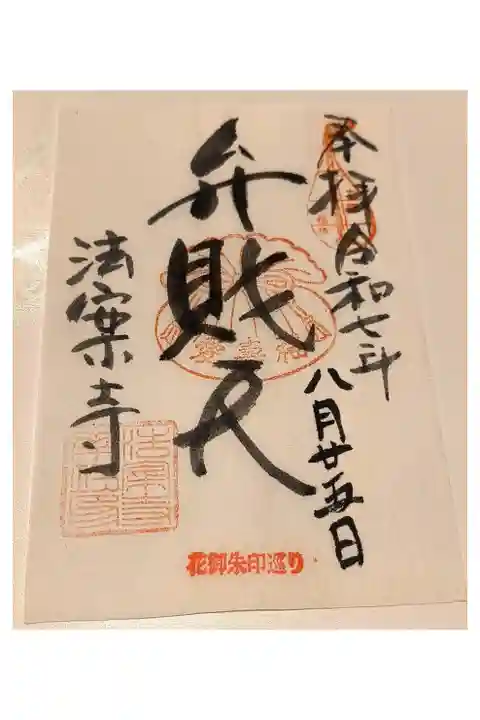 奉拝 令和七年
八月廿五日
弁財天
法案寺
花御朱印巡り